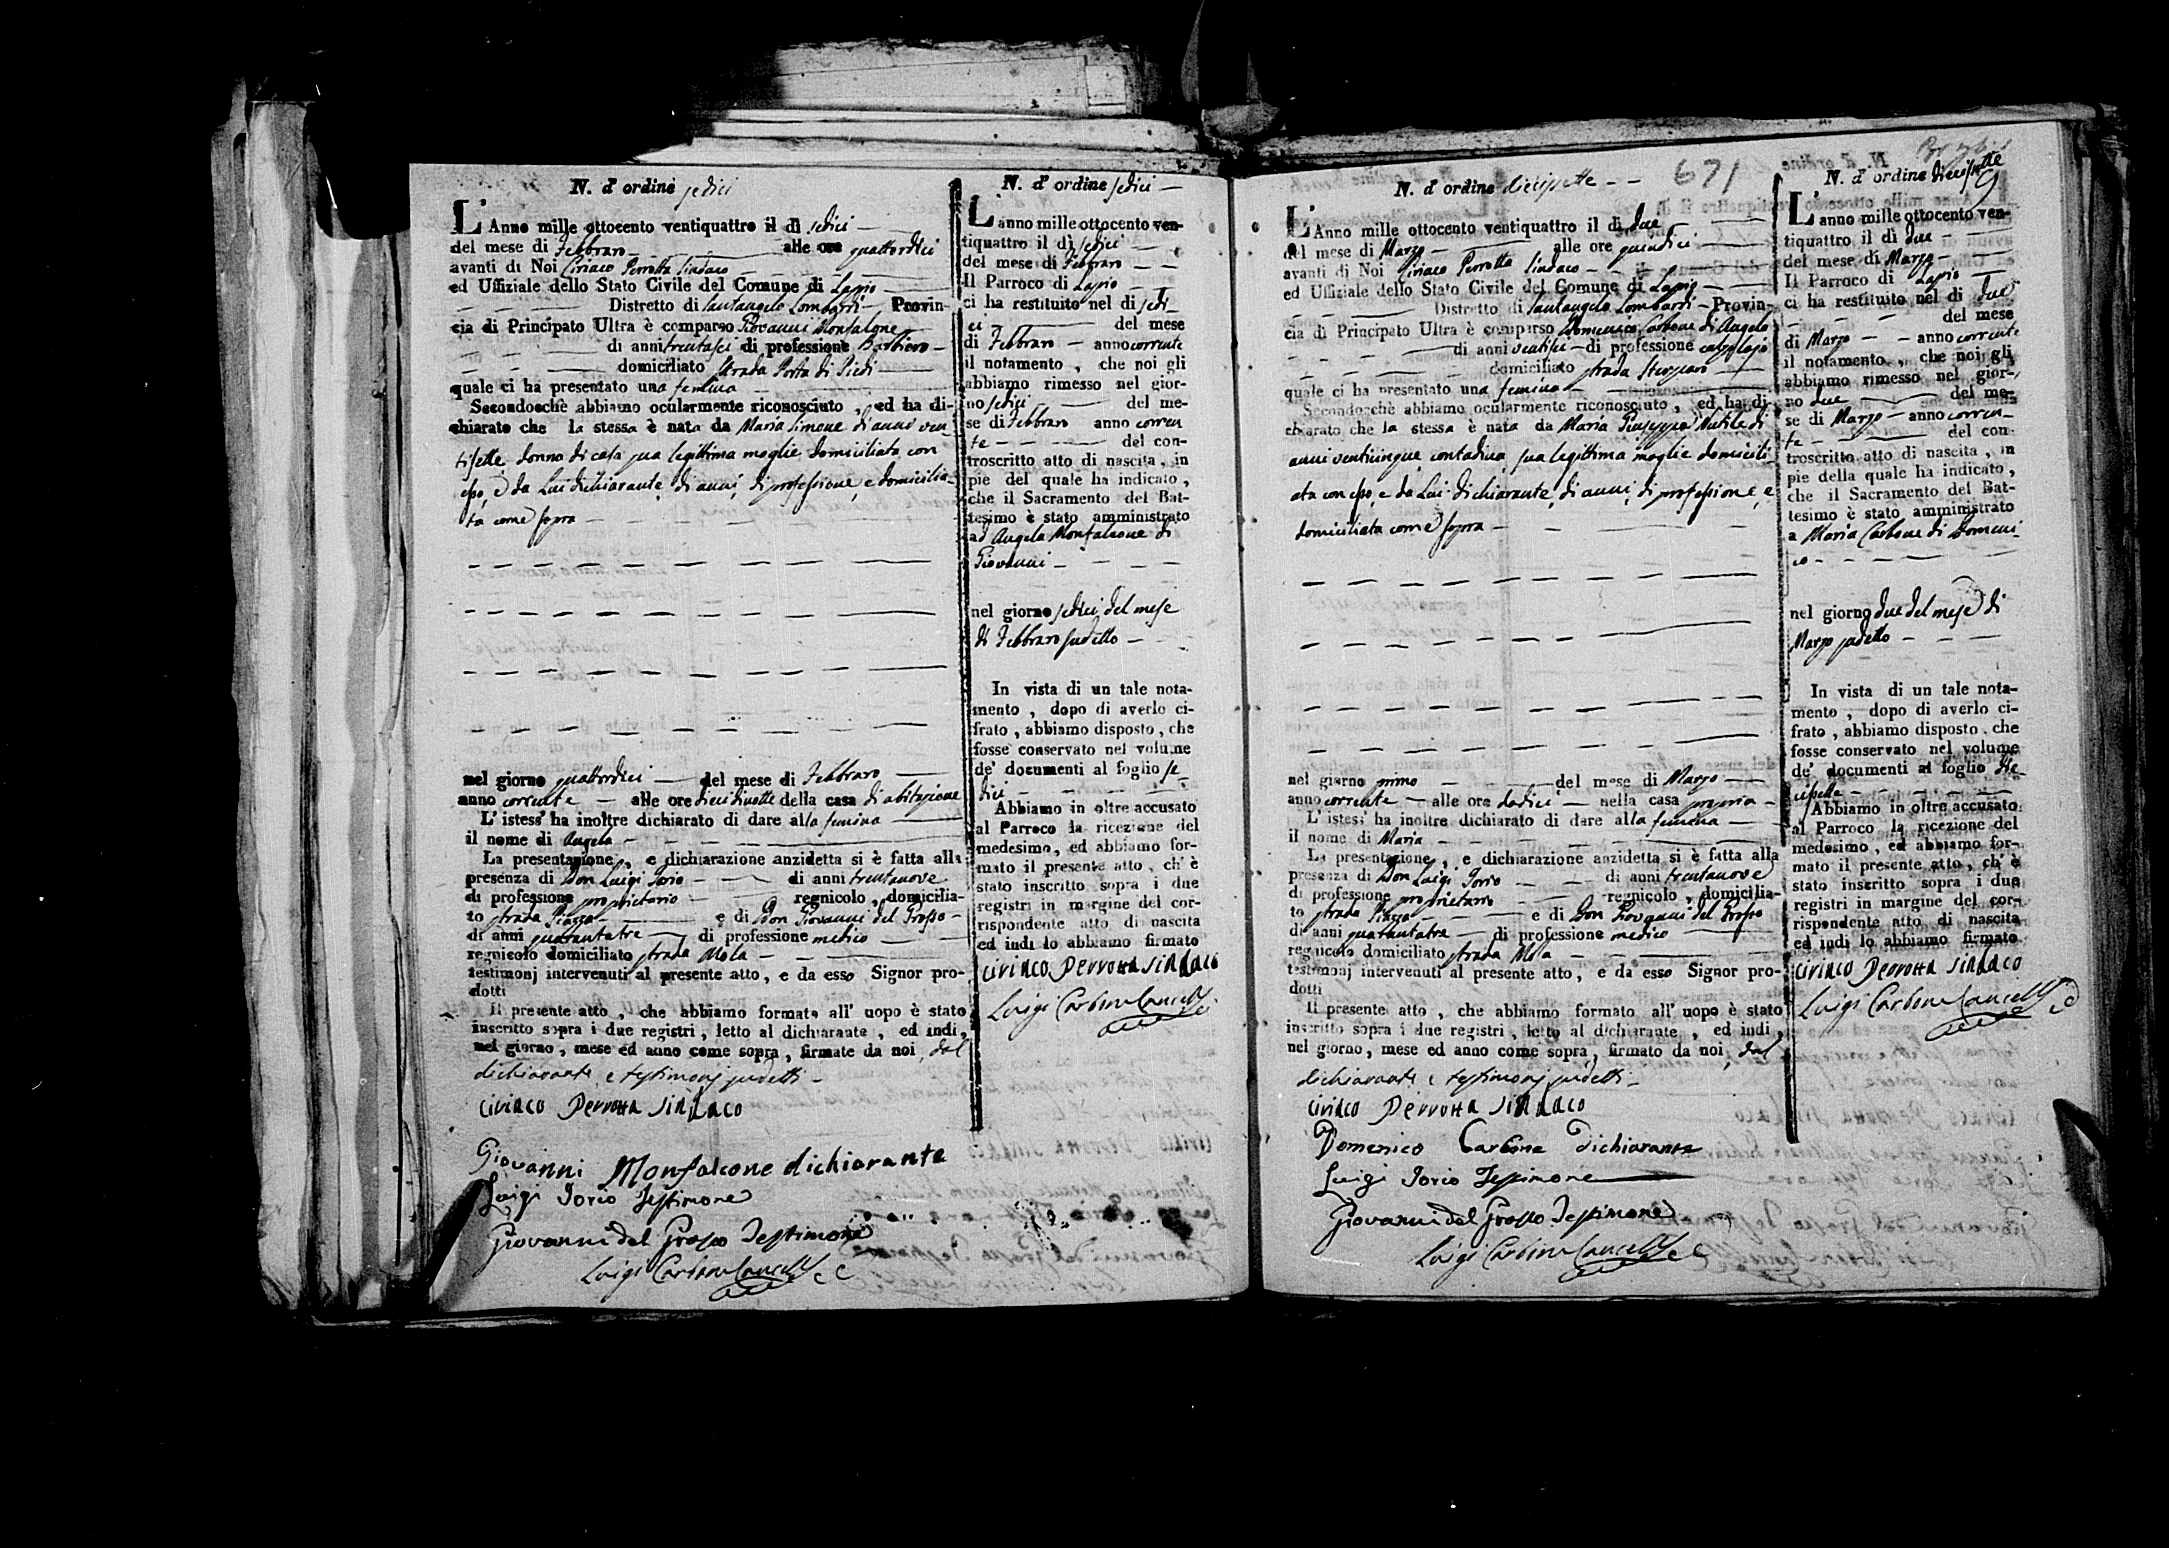 N. d' ordine sedici
L'Anno mille ottocento ventiquattro il dì sedici
del mese di Febbraro alle ore quattordici
avanti di Noi Ciriaco Perrotta Sindaco
ed Uffiziale dello Stato Civile del Comune di Lapio
Distretto di Santangelo Lombardi Provin-
cia di Principato Ultra è comparso Giovanni Monfalcone
di anni trentasei di professione Barbiero
domiciliato Strada Porta di Piedi
quale ci ha presentato una femina
Secondocchè abbiamo ocularmente riconosciuto, ed ha di-
chiarato che la stessa è nata da Maria Simone di anni ven-
tisette donna di casa sua legittima moglie domiciliata con
esso, e da Lui dichiarante di anni, di professione, e domicilia-
ta come sopra
nel giorno quattordici del mese di Febbraro
anno corrente alle ore diecidinotte della casa di abitazione
L' istess' ha inoltre dichiarato di dare alla femina
il nome di Angela
La presentazione, e dichiarazione anzidetta si è fatta alla
presenza di Don Luigi Jorio di anni trentanove
di professione proprietario regnicolo, domicilia-
to strada Piazza e di Don Giovanni del Grosso
di anni quarantatre di professione medico
regnicolo domiciliato strada Mola
testimonj intervenuti al presente atto, e da esso Signor pro-
dotti
Il presente atto, che abbiamo formato all' uopo è stato
inscritto sopra i due registri, letto al dichiarante, ed indi,
nel giorno, mese ed anno come sopra, firmato da noi, dal
dichiarante e testimonj sudetti
Ciriaco Perrotta Sindaco
Giovanni Monfalcone dichiarante
Luigi Jorio Testimone
Giovanni del Grosso Testimone
Luigi Carbone Cancell.e
N. d' ordine sedici
L'anno mille ottocento ven-
tiquattro il dì sedici
del mese di Febbraro
Il Parroco di Lapio
ci ha restituito nel di sedi-
ci del mese
di Febbraro anno corrente
il notamento, che noi gli
abbiamo rimesso nel gior-
no sedici del me-
se di Febbraro anno corren
te del con-
troscritto atto di nascita, in
pie del quale ha indicato,
che il Sacramento del Bat-
tesimo è stato amministrato
ad Angela Monfalcone di
Giovanni
nel giorno sedici del mese
di Febbraro sudetto
In vista di un tale nota-
mento, dopo di averlo ci-
frato, abbiamo disposto, che
fosse conservato nel volume
de' documenti al foglio se-
dici
Abbiamo in oltre accusato
al Parroco la ricezione del
medesimo, ed abbiamo for-
mato il presente atto, ch' è
stato inscritto sopra i due
registri in margine del cor-
rispondente atto di nascita
ed indi lo abbiamo firmato
Ciriaco Perrotta Sindaco
Luigi Carbone Cancell.e
N. d' ordine diecisette
671
L'Anno mille ottocento ventiquattro il dì due
del mese di Marzo alle ore quindici
avanti di Noi Ciriaco Perrotta Sindaco
ed Uffiziale dello Stato Civile del Comune di Lapio
Distretto di Santangelo Lombardi Provin-
cia di Principato Ultra è comparso Domenico Carbone di Angelo
di anni ventisei di professione
domiciliato strada
quale ci ha presentato una femina
Secondocchè abbiamo ocularmente riconosciuto, ed ha di-
chiarato che la stessa è nata da Maria Giuseppa di
anni venticinque contadina sua legittima moglie domicili-
ata con esso, e da Lui dichiarante, di anni, di professione, e
domiciliata come sopra
nel giorno primo del mese di Marzo
anno corrente alle ore dodici nella casa propria
L' istess' ha inoltre dichiarato di dare alla femina
il nome di Maria
La presentazione, e dichiarazione anzidetta si è fatta alla
presenza di Don Luigi Jorio di anni trentanove
di professione proprietario regnicolo, domicilia-
to strada Piazza e di Don Giovanni del Grosso
di anni quarantatre di professione medico
regnicolo domiciliato strada Mola
testimonj intervenuti al presente atto, e da esso Signor pro-
dotti
Il presente atto, che abbiamo formato all' uopo è stato
inscritto sopra i due registri, letto al dichiarante, ed indi,
nel giorno, mese ed anno come sopra, firmato da noi, dal
dichiarante e testimonj sudetti
Ciriaco Perrotta Sindaco
Domenico Carbone Dichiarante
Luigi Jorio Testimone
Giovanni del Grosso Testimone
Luigi Carbone Cancell.e
N. d' ordine diecisette
L'anno mille ottocento ven-
tiquattro il dì due
del mese di Marzo
Il Parroco di Lapio
ci ha restituito nel di due
del mese
di Marzo anno corrente
il notamento, che noi gli
abbiamo rimesso nel gior-
no due del me-
se di Marzo anno corren-
te del con-
troscritto atto di nascita, in
pie della quale ha indicato,
che il Sacramento del Bat-
tesimo è stato amministrato
a Maria Carbone di Domeni-
co
nel giorno due del mese di
Marzo sudetto
In vista di un tale nota-
mento, dopo di averlo ci-
frato, abbiamo disposto, che
fosse conservato nel volume
de' documenti al foglio die-
cisette
Abbiamo in oltre accusato
al Parroco la ricezione del
medesimo, ed abbiamo for-
mato il presente atto, ch' è
stato inscritto sopra i due
registri in margine del cor-
rispondente atto di nascita
ed indi lo abbiamo firmato
Ciriaco Perrotta Sindaco
Luigi Carbone Cancell.e